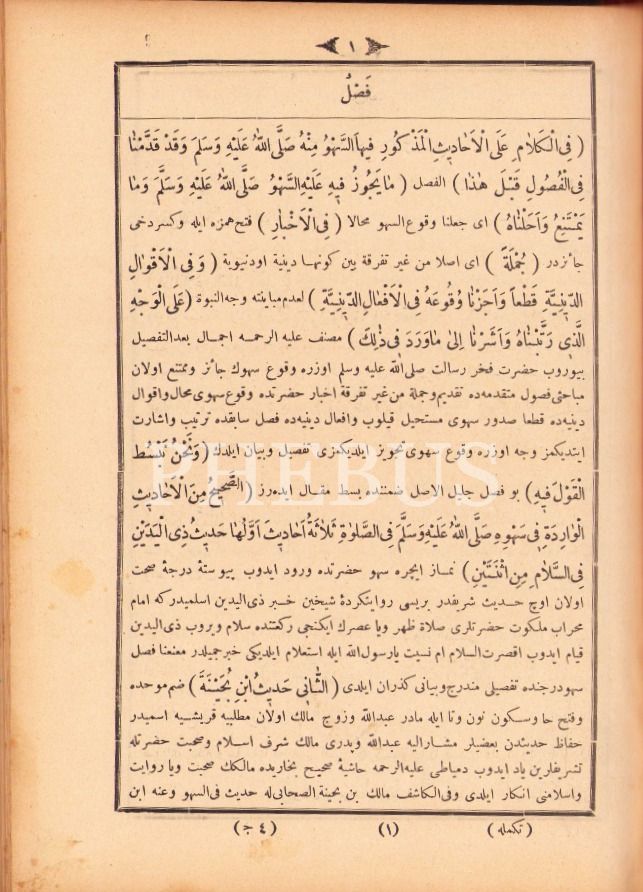 ١
فَصْلٌ
( فِى الْكَلَامِ عَلَى الْاَحَادِيثِ الْمَذْكُورِ فِيهَا السَّهْوُ مِنْهُ صَلَّى اللّٰهُ عَلَيْهِ وَسَلَّمَ وَقَدْ قَدَّمْنَا
فِى الْفُصُولِ قَبْلَ هٰذَا ) الفصل ( مَا يَجُوزُ فِيهِ عَلَيْهِ السَّهْوُ صَلَّى اللّٰهُ عَلَيْهِ وَسَلَّمَ وَمَا
يَمْتَنِعُ وَاَحَلْنَاهُ ) اى جعلنا وقوع السهو محالا ( فِى الْاَخْبَارِ ) فتح همزه ايله وكسردخى
جائزدر ( جُمْلَةً ) اى اصلا من غير تفرقة بين كونها دينية اودنيوية ( وَفِى الْاَقْوَالِ
الدِّينِيَّةِ قَطْعاً وَاَجَزْنَا وُقُوعَهُ فِى الْاَفْعَالِ الدِّينِيَّةِ ) لعدم مباينته وجه النبوة ( عَلَى الْوَجْهِ
الَّذِى رَتَّبْنَاهُ وَاَشَرْنَا اِلٰى مَا وَرَدَ فِى ذٰلِكَ ) مصنف عليه الرحمه اجمال بعدالتفصيل
بيوروب حضرت فخر رسالت صلى الله عليه وسلم اوزره وقوع سهوك جائز وممتنع اولان
مباحثى فصول متقدمه ده تقديم وجملة من غير تفرقة اخبار حضرتده وقوع سهوى محال واقوال
دينيه ده قطعا صدور سهوى مستحيل قيلوب وافعال دينيه ده فصل سابقده ترتيب واشارت
ايتديكمز وجه اوزره وقوع سهوى تجويز ايلديكمزى تفصيل وبيان ايلدك ( وَنَحْنُ نَبْسُطُ
الْقَوْلَ فِيهِ ) بو فصل جليل الاصل ضمننده بسط مقال ايده رز ( الصَّحِيحُ مِنَ الْاَحَادِيثِ
الْوَارِدَةِ فِى سَهْوِهِ صَلَّى اللّٰهُ عَلَيْهِ وَسَلَّمَ فِى الصَّلٰوةِ ثَلَاثَةُ اَحَادِيثَ اَوَّلُهَا حَدِيثُ ذِى الْيَدَيْنِ
فِى السَّلَامِ مِنِ اثْنَتَيْنِ ) نماز ايچره سهو حضرتده ورود ايدوب پيوستۀ درجۀ صحت
اولان اوچ حديث شريفدر بريسى روايتكردۀ شيخين خبر ذى اليدين اسلميدركه امام
محراب ملكوت حضرتلرى صلاة ظهر ويا عصرك ايكنجى ركعتنده سلام ويروب ذى اليدين
قيام ايدوب اقصرت السلام ام نسيت يارسول الله ايله استعلام ايلديكى خبرجميلدر معنعنا فصل
سهودرجنده تفصيلى مندرج وبيانى كذران ايلدى ( الثَّانِى حَدِيثُ ابْنِ بُحَيْنَةَ ) ضم موحده
وفتح حا وسكون نون وتا ايله مادر عبدالله وزوج مالك اولان مطلبيه قريشيه اسميدر
حفاظ حديثدن بعضيلر مشاراليه عبدالله وپدرى مالك شرف اسلام وصحبت حضرتله
تشريفلرين ياد ايدوب دمياطى عليه الرحمه حاشيۀ صحيح بخاريده مالكك صحبت ويا روايت
واسلامنى انكار ايلدى وفى الكاشف مالك بن بحينة الصحابى له حديث فى السهو وعنه ابن
( تكمله ) (١) ( ٤ ج )
PHEBUS